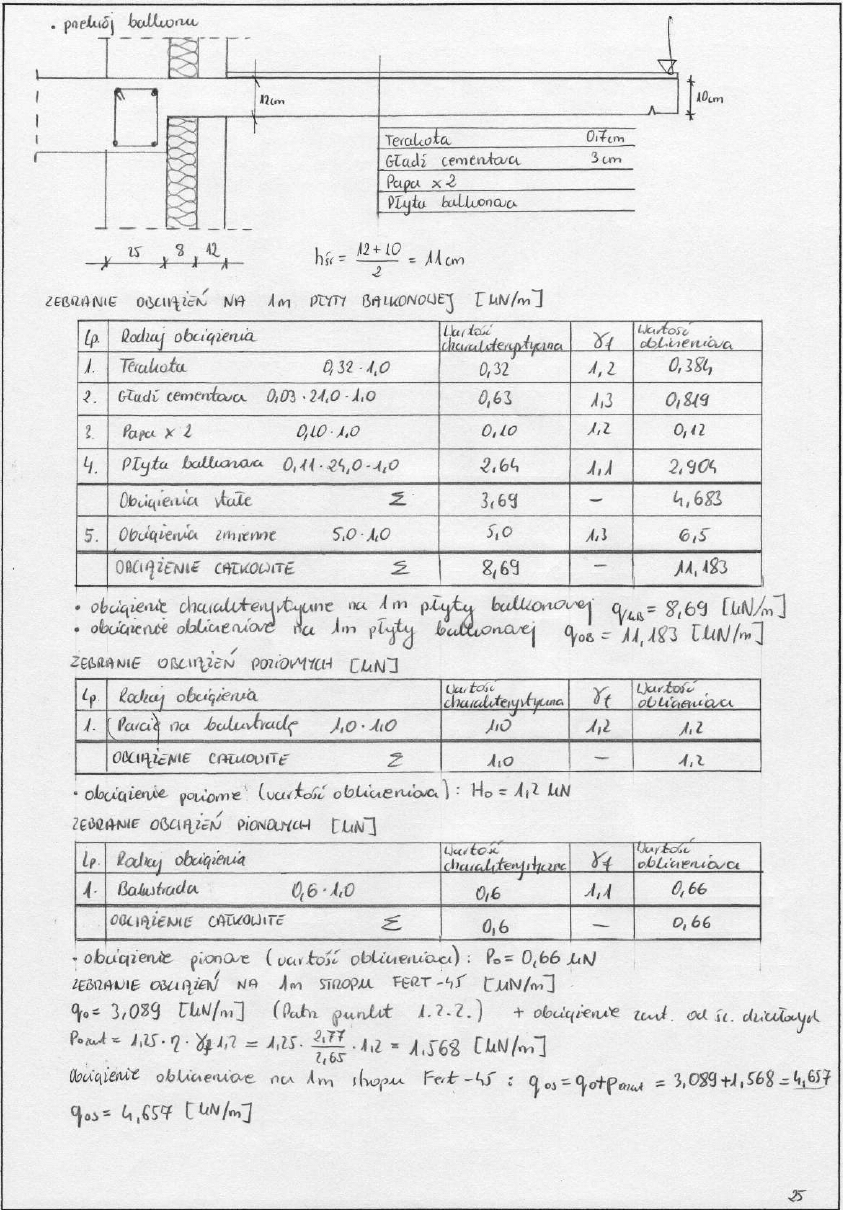 • przekrój balkonu
12cm
10cm
Terakota 0,7cm
Gładź cementowa 3cm
Papa x 2
Płyta balkonowa
25 8 12
hśr = 12+10 / 2 = 11cm
ZEBRANIE OBCIĄŻEŃ NA 1m PŁYTY BALKONOWEJ [kN/m]
Lp. Rodzaj obciążenia Wartość charakterystyczna γf Wartość obliczeniowa
1. Terakota 0,32·1,0 0,32 1,2 0,384
2. Gładź cementowa 0,03·21,0·1,0 0,63 1,3 0,819
3. Papa x 2 0,10·1,0 0,10 1,2 0,12
4. Płyta balkonowa 0,11·24,0·1,0 2,64 1,1 2,904
Obciążenia stałe Σ 3,69 – 4,683
5. Obciążenia zmienne 5,0·1,0 5,0 1,3 6,5
OBCIĄŻENIE CAŁKOWITE Σ 8,69 – 11,183
• obciążenie charakterystyczne na 1m płyty balkonowej qkB = 8,69 [kN/m]
• obciążenie obliczeniowe na 1m płyty balkonowej qoB = 11,183 [kN/m]
ZEBRANIE OBCIĄŻEŃ POZIOMYCH [kN]
Lp. Rodzaj obciążenia Wartość charakterystyczna γf Wartość obliczeniowa
1. (Parcie) na balustradę 1,0·1,0 1,0 1,2 1,2
OBCIĄŻENIE CAŁKOWITE Σ 1,0 – 1,2
• obciążenie poziome (wartość obliczeniowa): Ho = 1,2 kN
ZEBRANIE OBCIĄŻEŃ PIONOWYCH [kN]
Lp. Rodzaj obciążenia Wartość charakterystyczna γf Wartość obliczeniowa
1. Balustrada 0,6·1,0 0,6 1,1 0,66
OBCIĄŻENIE CAŁKOWITE Σ 0,6 – 0,66
• obciążenie pionowe (wartość obliczeniowa): Po = 0,66 kN
ZEBRANIE OBCIĄŻEŃ NA 1m STROPU FERT-45 [kN/m]
qo = 3,089 [kN/m] (Patrz punkt 1.2.2.) + obciążenie zast. od śc. działowych
Pozast = 1,25·η·γf 1,2 = 1,25· 2,77 / 2,65 ·1,2 = 1,568 [kN/m]
Obciążenie obliczeniowe na 1m stropu Fert-45 : qos = qo+pozast = 3,089+1,568 = 4,657
qos = 4,657 [kN/m]
25